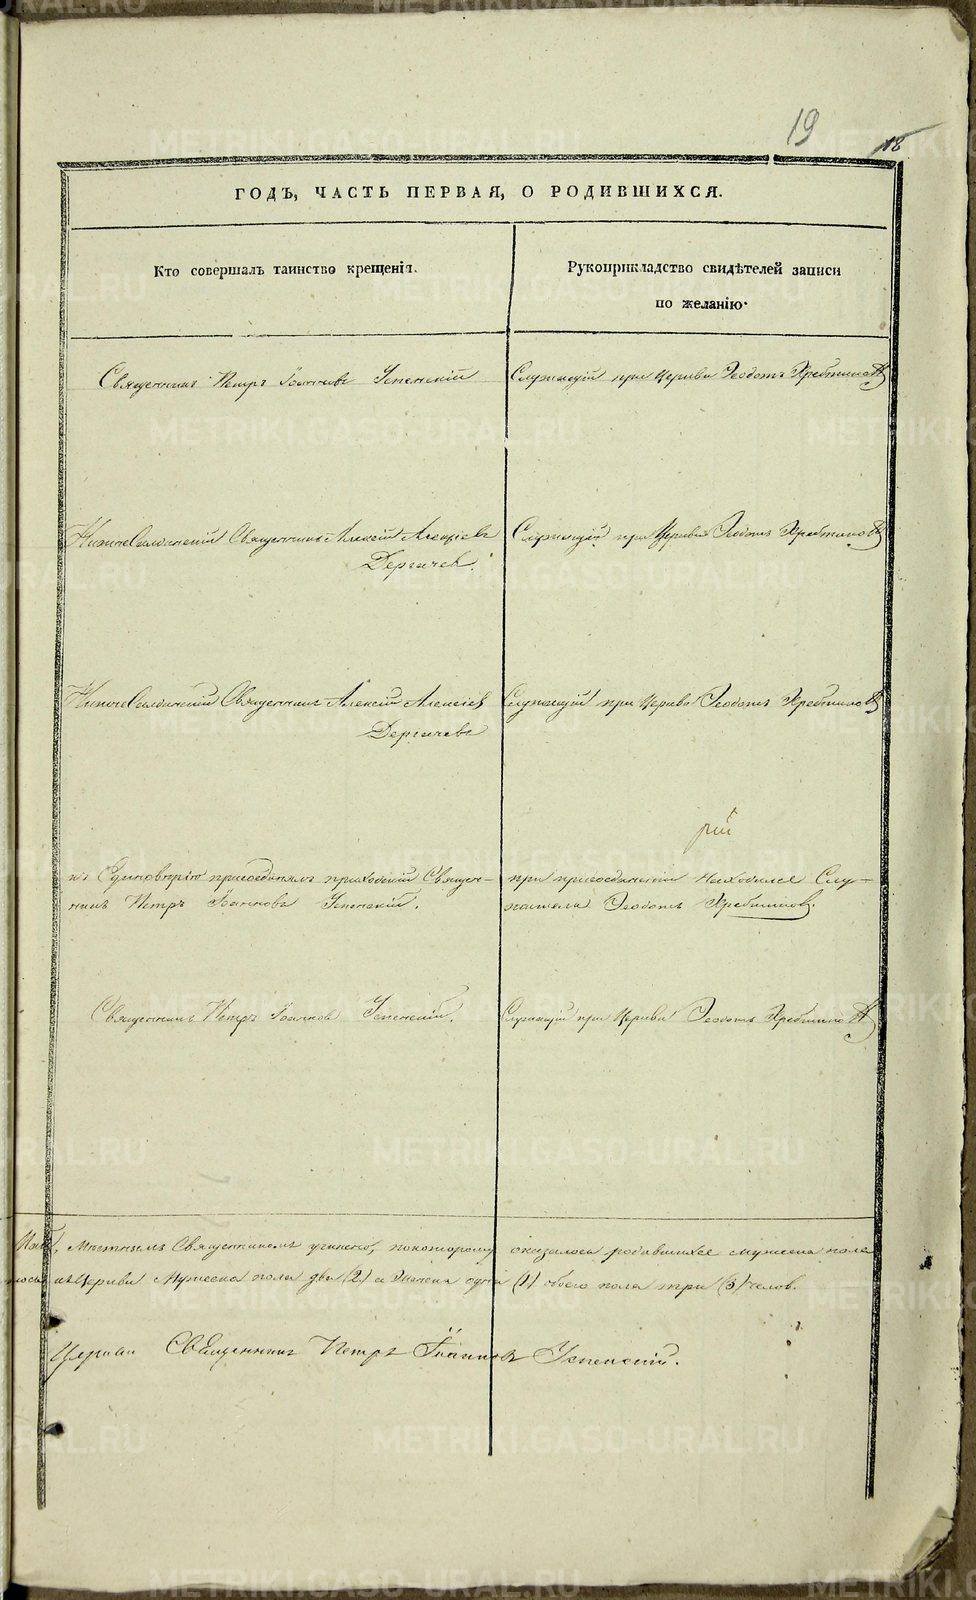 19
18
ГОДЪ, ЧАСТЬ ПЕРВАЯ, О РОДИВШИХСЯ.
Кто совершалъ таинство крещенія.
Рукоприкладство свидѣтелей записи
по желанію.
Священникъ Петръ Іоанновъ Успенскій
Служащій при Церкви Ѳеодотъ Хребтиковъ
Нижне Салдинскій Священникъ Алексій Алексіевъ
Дергачев.
Служащій при Церкви Ѳеодотъ Хребтиковъ
Нижне Салдинскій Священникъ Алексій Алексіев
Дергачевъ
Служащій при Церкви Ѳеодотъ Хребтиковъ
рій
къ Единовѣрію присоединялъ приходскій Священ-
никъ Петръ Іоанновъ Успенскій.
при присоединеніи находился Слу-
Ѳеодотъ Хребтиков.
Священникъ Петръ Іоаннов Успенскій.
Служащій при Церкви Ѳеодотъ Хребтиковъ
Мѣстнымъ Священникомъ учинено, покоторому оказалось родившихся мужеска пола
Церкви Мужеска пола два (2) а Женска одна (1) обоего пола три (3) челов.
Церкви Священникъ Петръ Іоанновъ Успенскій.
METRIKI.GASO-URAL.RU